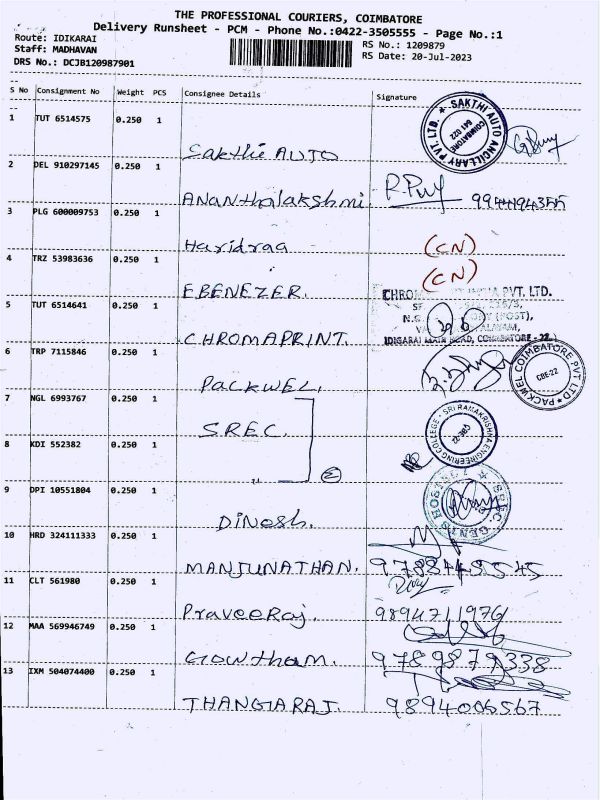 THE PROFESSIONAL COURIERS, COIMBATORE
Delivery Runsheet - PCM - Phone No.:0422-3505555 - Page No.:1
Route: IDIKARAI
RS No.: 1209879
Staff: MADHAVAN
RS Date: 20-Jul-2023
DRS No.: DCJB120987901
S No Consignment No Weight PCS Consignee Details Signature
1 TUT 6514575 0.250 1
SAKTHI AUTO ANCILLARY PVT LTD. COIMBATORE 641 022
Sakthi AUTO
2 DEL 910297145 0.250 1
Ananthalakshmi 9944194355
3 PLG 600009753 0.250 1
Haridraa (CN)
4 TRZ 53983636 0.250 1
(CN)
EBENEZER.
CHROM PVT. LTD.
5 TUT 6514641 0.250 1
(POST),
IDIGARAI MAIN ROAD, COIMBATORE - 22.
CHROMAPRINT.
6 TRP 7115846 0.250 1
PACKWEL COIMBATORE PVT LTD CBE-22
PACKWEL.
7 NGL 6993767 0.250 1
SRI RAMAKRISHNA ENGINEERING COLLEGE
SREC.
8 KDI 552382 0.250 1
"
9 DPI 10551804 0.250 1
SREC. GENTS HOSTEL
Dinesh.
10 HRD 324111333 0.250 1
MANJUNATHAN. 9788448545
11 CLT 561980 0.250 1
Praveeraj. 9894711976
12 MAA 569946749 0.250 1
Gowtham. 9789879338
13 IXM 504074400 0.250 1
THANGARAJ. 9894006567